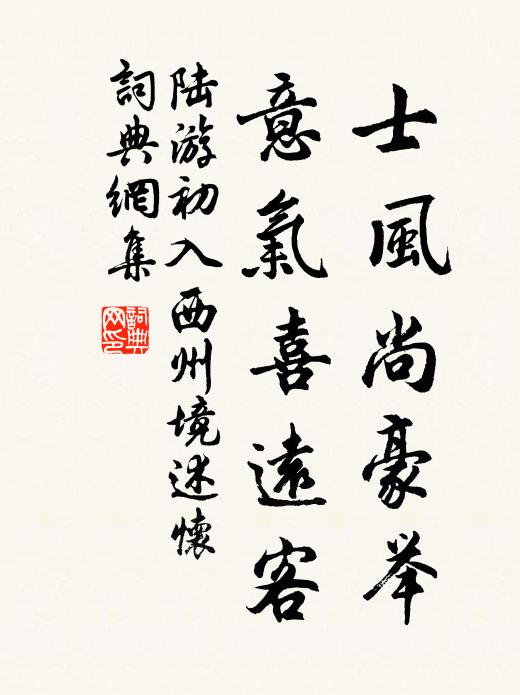 士風尚豪举
意氣喜遠客
陆游初入西州境述懷
詞典網集
詞典网印